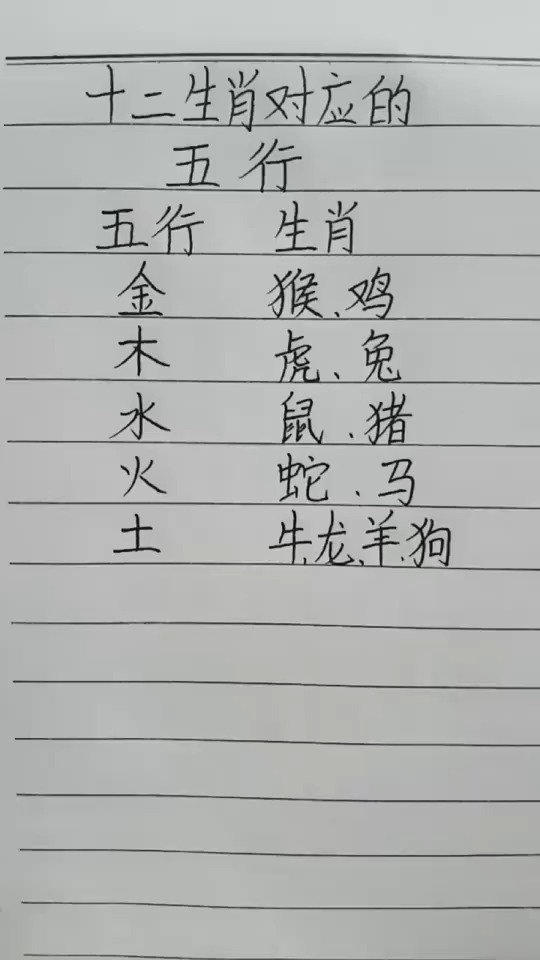 十二生肖对应的
五行
五行 生肖
金 猴、鸡
木 虎、兔
水 鼠、猪
火 蛇、马
土 牛、龙、羊、狗